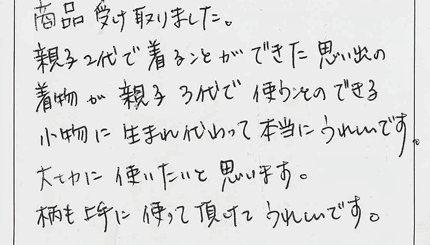 商品受け取りました。
親子2代で着ることができた思い出の
着物が親子3代で使うことのできる
小物に生まれ代わって本当にうれしいです。
大切に使いたいと思います。
柄も上手に使って頂けてうれしいです。